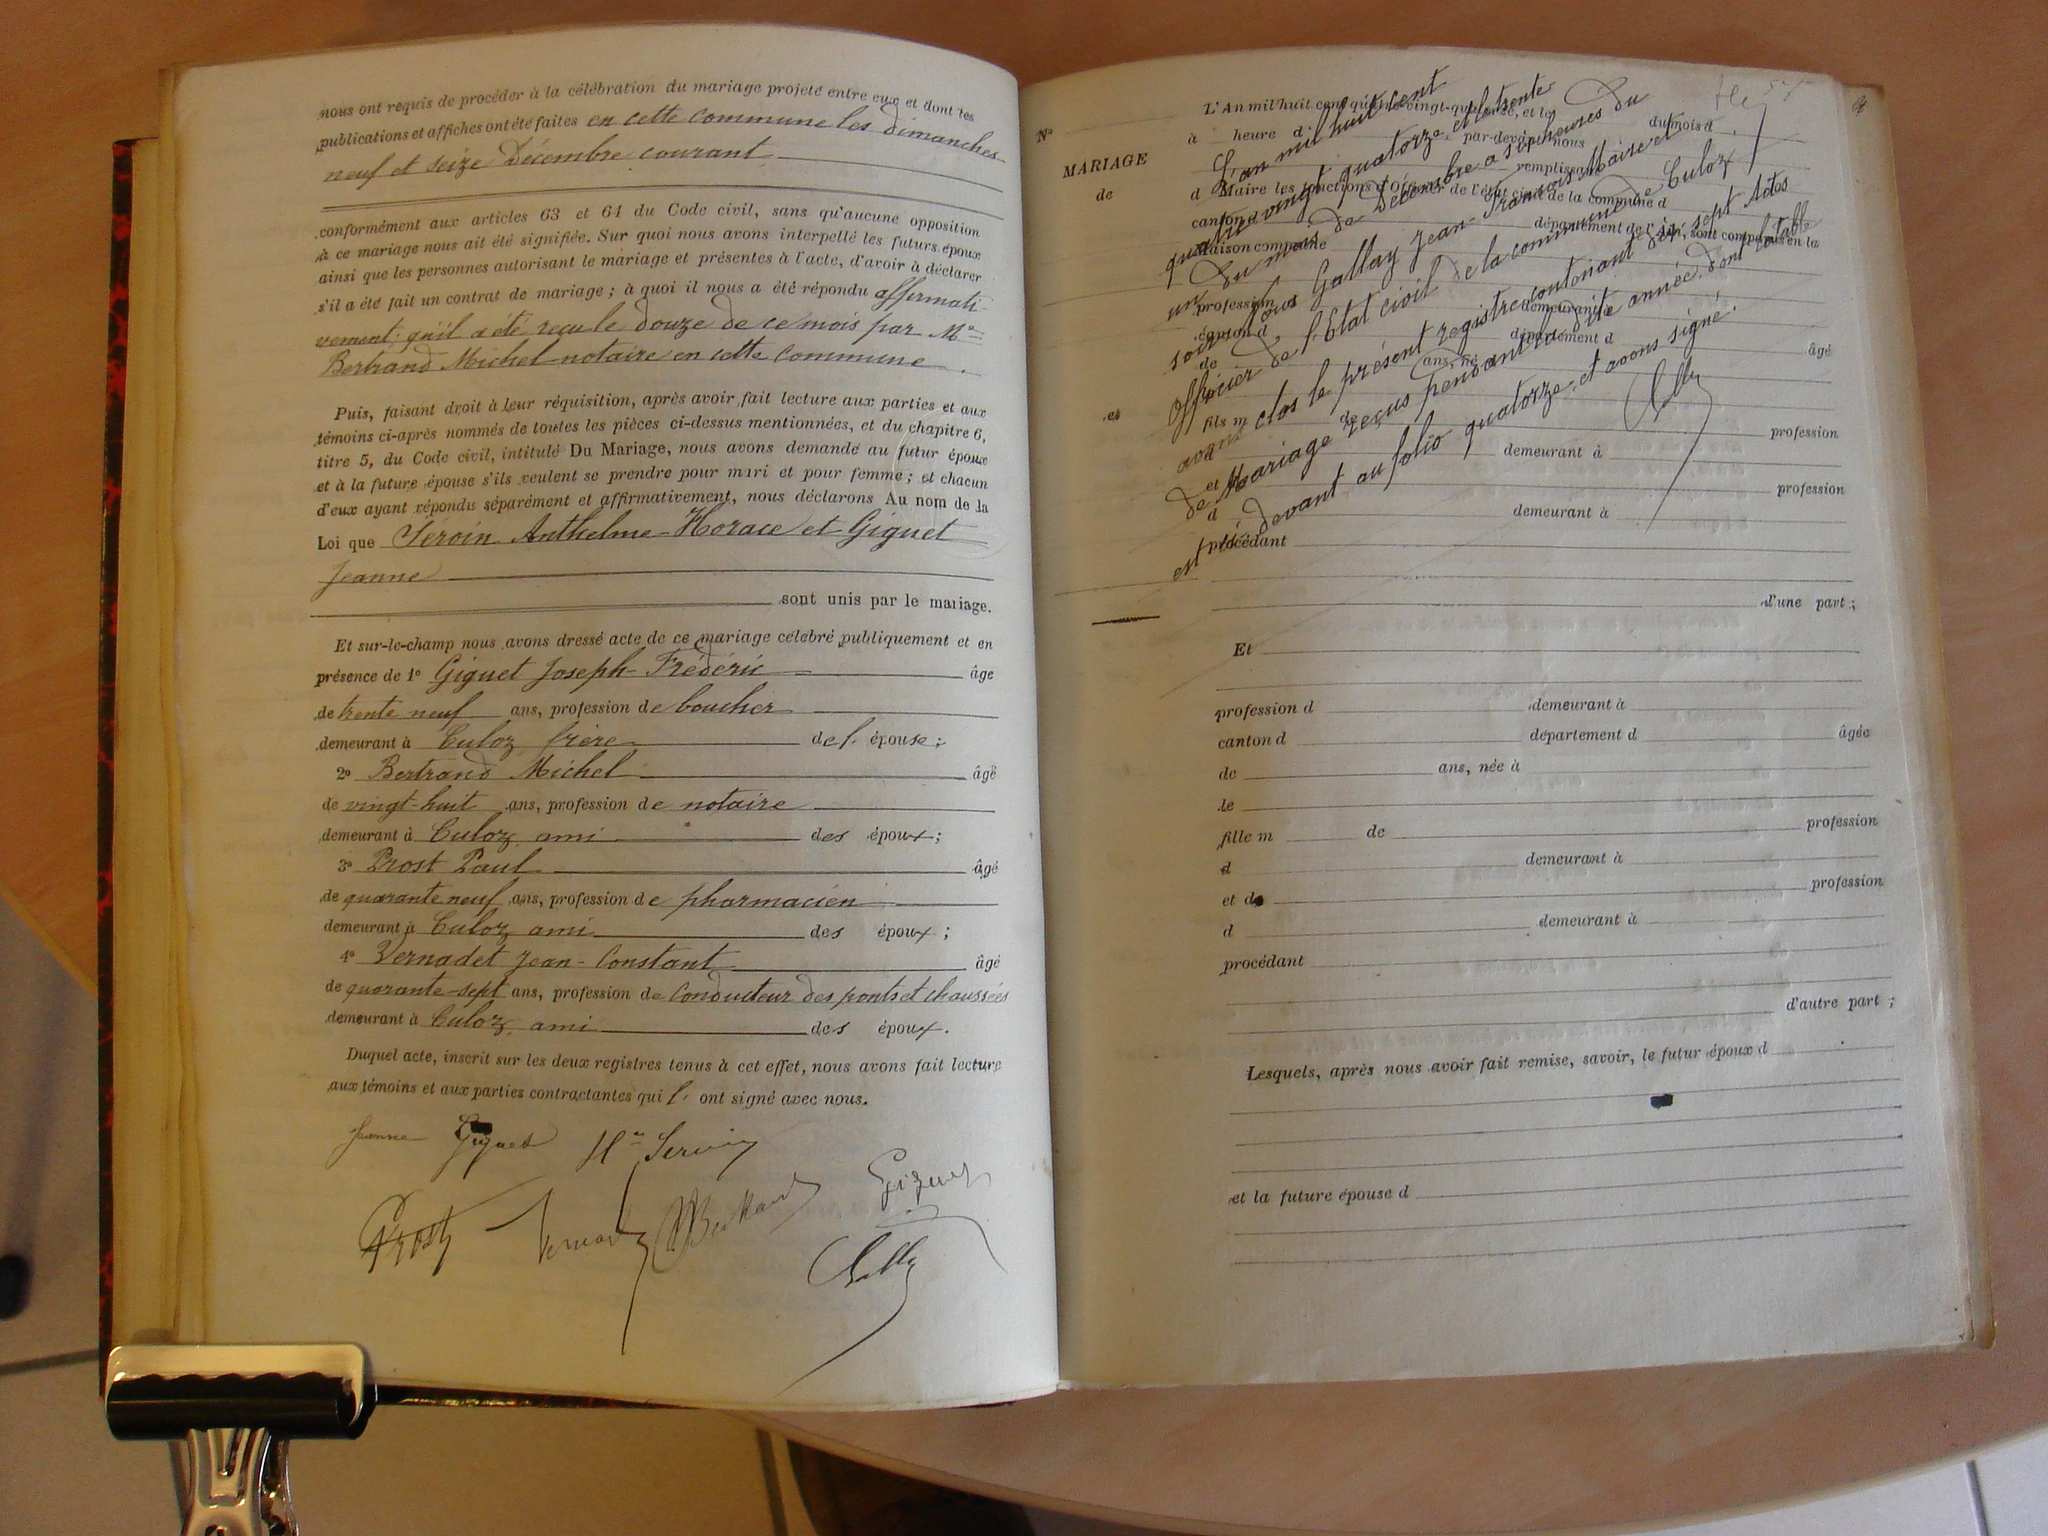 nous ont requis de procéder à la célébration du mariage projeté entre eux et dont les
publications et affiches ont été faites en cette commune les dimanches
neuf et seize Décembre courant
conformément aux articles 63 et 64 du Code civil, sans qu'aucune opposition
à ce mariage nous ait été signifiée. Sur quoi nous avons interpellé les futurs époux
ainsi que les personnes autorisant le mariage et présentes à l'acte, d'avoir à déclarer
s'il a été fait un contrat de mariage ; à quoi il nous a été répondu affirmati-
vement qu'il a été reçu le douze de ce mois par Me
Bertrand Michel notaire en cette commune.
Puis, faisant droit à leur réquisition, après avoir fait lecture aux parties et aux
témoins ci-après nommés de toutes les pièces ci-dessus mentionnées, et du chapitre 6,
titre 5, du Code civil, intitulé Du Mariage, nous avons demandé au futur époux
et à la future épouse s'ils veulent se prendre pour mari et pour femme ; et chacun
d'eux ayant répondu séparément et affirmativement, nous déclarons Au nom de la
Loi que Séroin Anthelme-Horace et Giguet
Jeanne
sont unis par le mariage.
Et sur-le-champ nous avons dressé acte de ce mariage célébré publiquement et en
présence de 1° Giguet Joseph-Frédéric âgé
de trente neuf ans, profession de boucher
demeurant à Culoz frère de l' épouse ;
2° Bertrand Michel âgé
de vingt-huit ans, profession de notaire
demeurant à Culoz ami des époux ;
3° Prost Paul âgé
de quarante neuf ans, profession de pharmacien
demeurant à Culoz ami des époux ;
4° Vernadet Jean-Constant âgé
de quarante-sept ans, profession de conducteur des ponts et chaussées
demeurant à Culoz ami des époux.
Duquel acte, inscrit sur les deux registres tenus à cet effet, nous avons fait lecture
aux témoins et aux parties contractantes qui l' ont signé avec nous.
Jeanne Giguet
Prost Bertrand Giguet
N°
MARIAGE
de
et
L'An mil huit cent quatre-vingt-quatorze, et le
à heure d du mois d
par-devant nous
d Maire remplissant
les fonctions d'Officier de l'état civil de la commune d
canton d département de l'Ain, sont comparus en la
Maison commune
profession d demeurant à
canton d département d âgé
de ans, né
fils m de profession
d demeurant à
et profession
d demeurant à
procédant
d'une part ;
L'an mil huit cent
quatre vingt quatorze et le trente
un du mois de Décembre à sept heures du
soir Nous Gallay Jean-François Maire et
officier de l'Etat civil de la commune de Culoz
avons clos le présent registre contenant dix sept Actes
de Mariage reçus pendant la dite année, dont la table
est ci devant au folio quatorze, et avons signé.
Et
profession d demeurant à
canton d département d âgée
de ans, née à
le
fille m de profession
d demeurant à
et de profession
d demeurant à
procédant
d'autre part ;
Lesquels, après nous avoir fait remise, savoir, le futur époux d
et la future épouse d